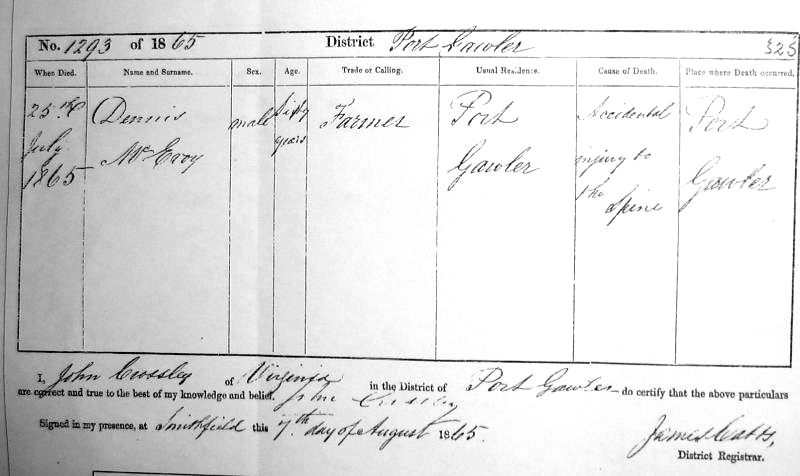 No. 1293 of 1865 District Port Gawler 325
When Died. Name and Surname. Sex. Age. Trade or Calling. Usual Residence. Cause of Death. Place where Death occurred.
25th Dennis male Sixty Farmer Port Accidental Port
July Mc Evoy years Gawler injury to Gawler
1865 the Spine
I, John Crossley of Virginia in the District of Port Gawler do certify that the above particulars
are correct and true to the best of my knowledge and belief. John Crossley
Signed in my presence, at Smithfield this 7th day of August 1865.
James Catts,
District Registrar.